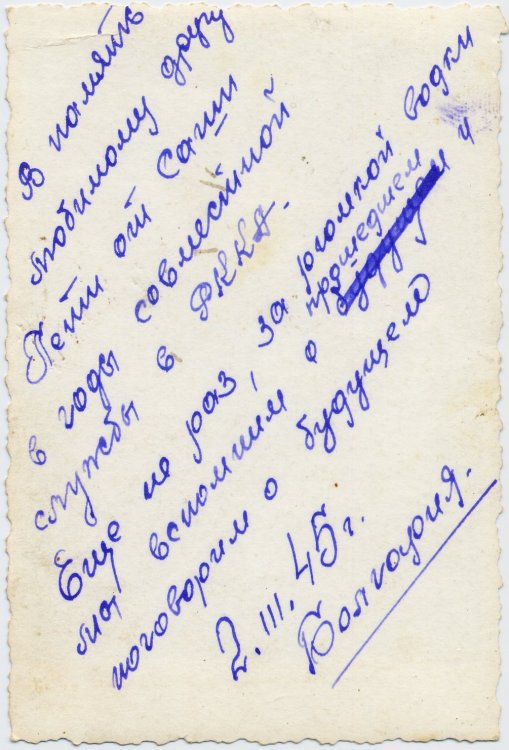 В память
любимому другу
Пети от Саши
в годы совместной
службы в РККА.
Еще не раз, за рюмкой водки
мы вспомним о прошедшем и
поговорим о будущем
2.III.45г.
Болгария.